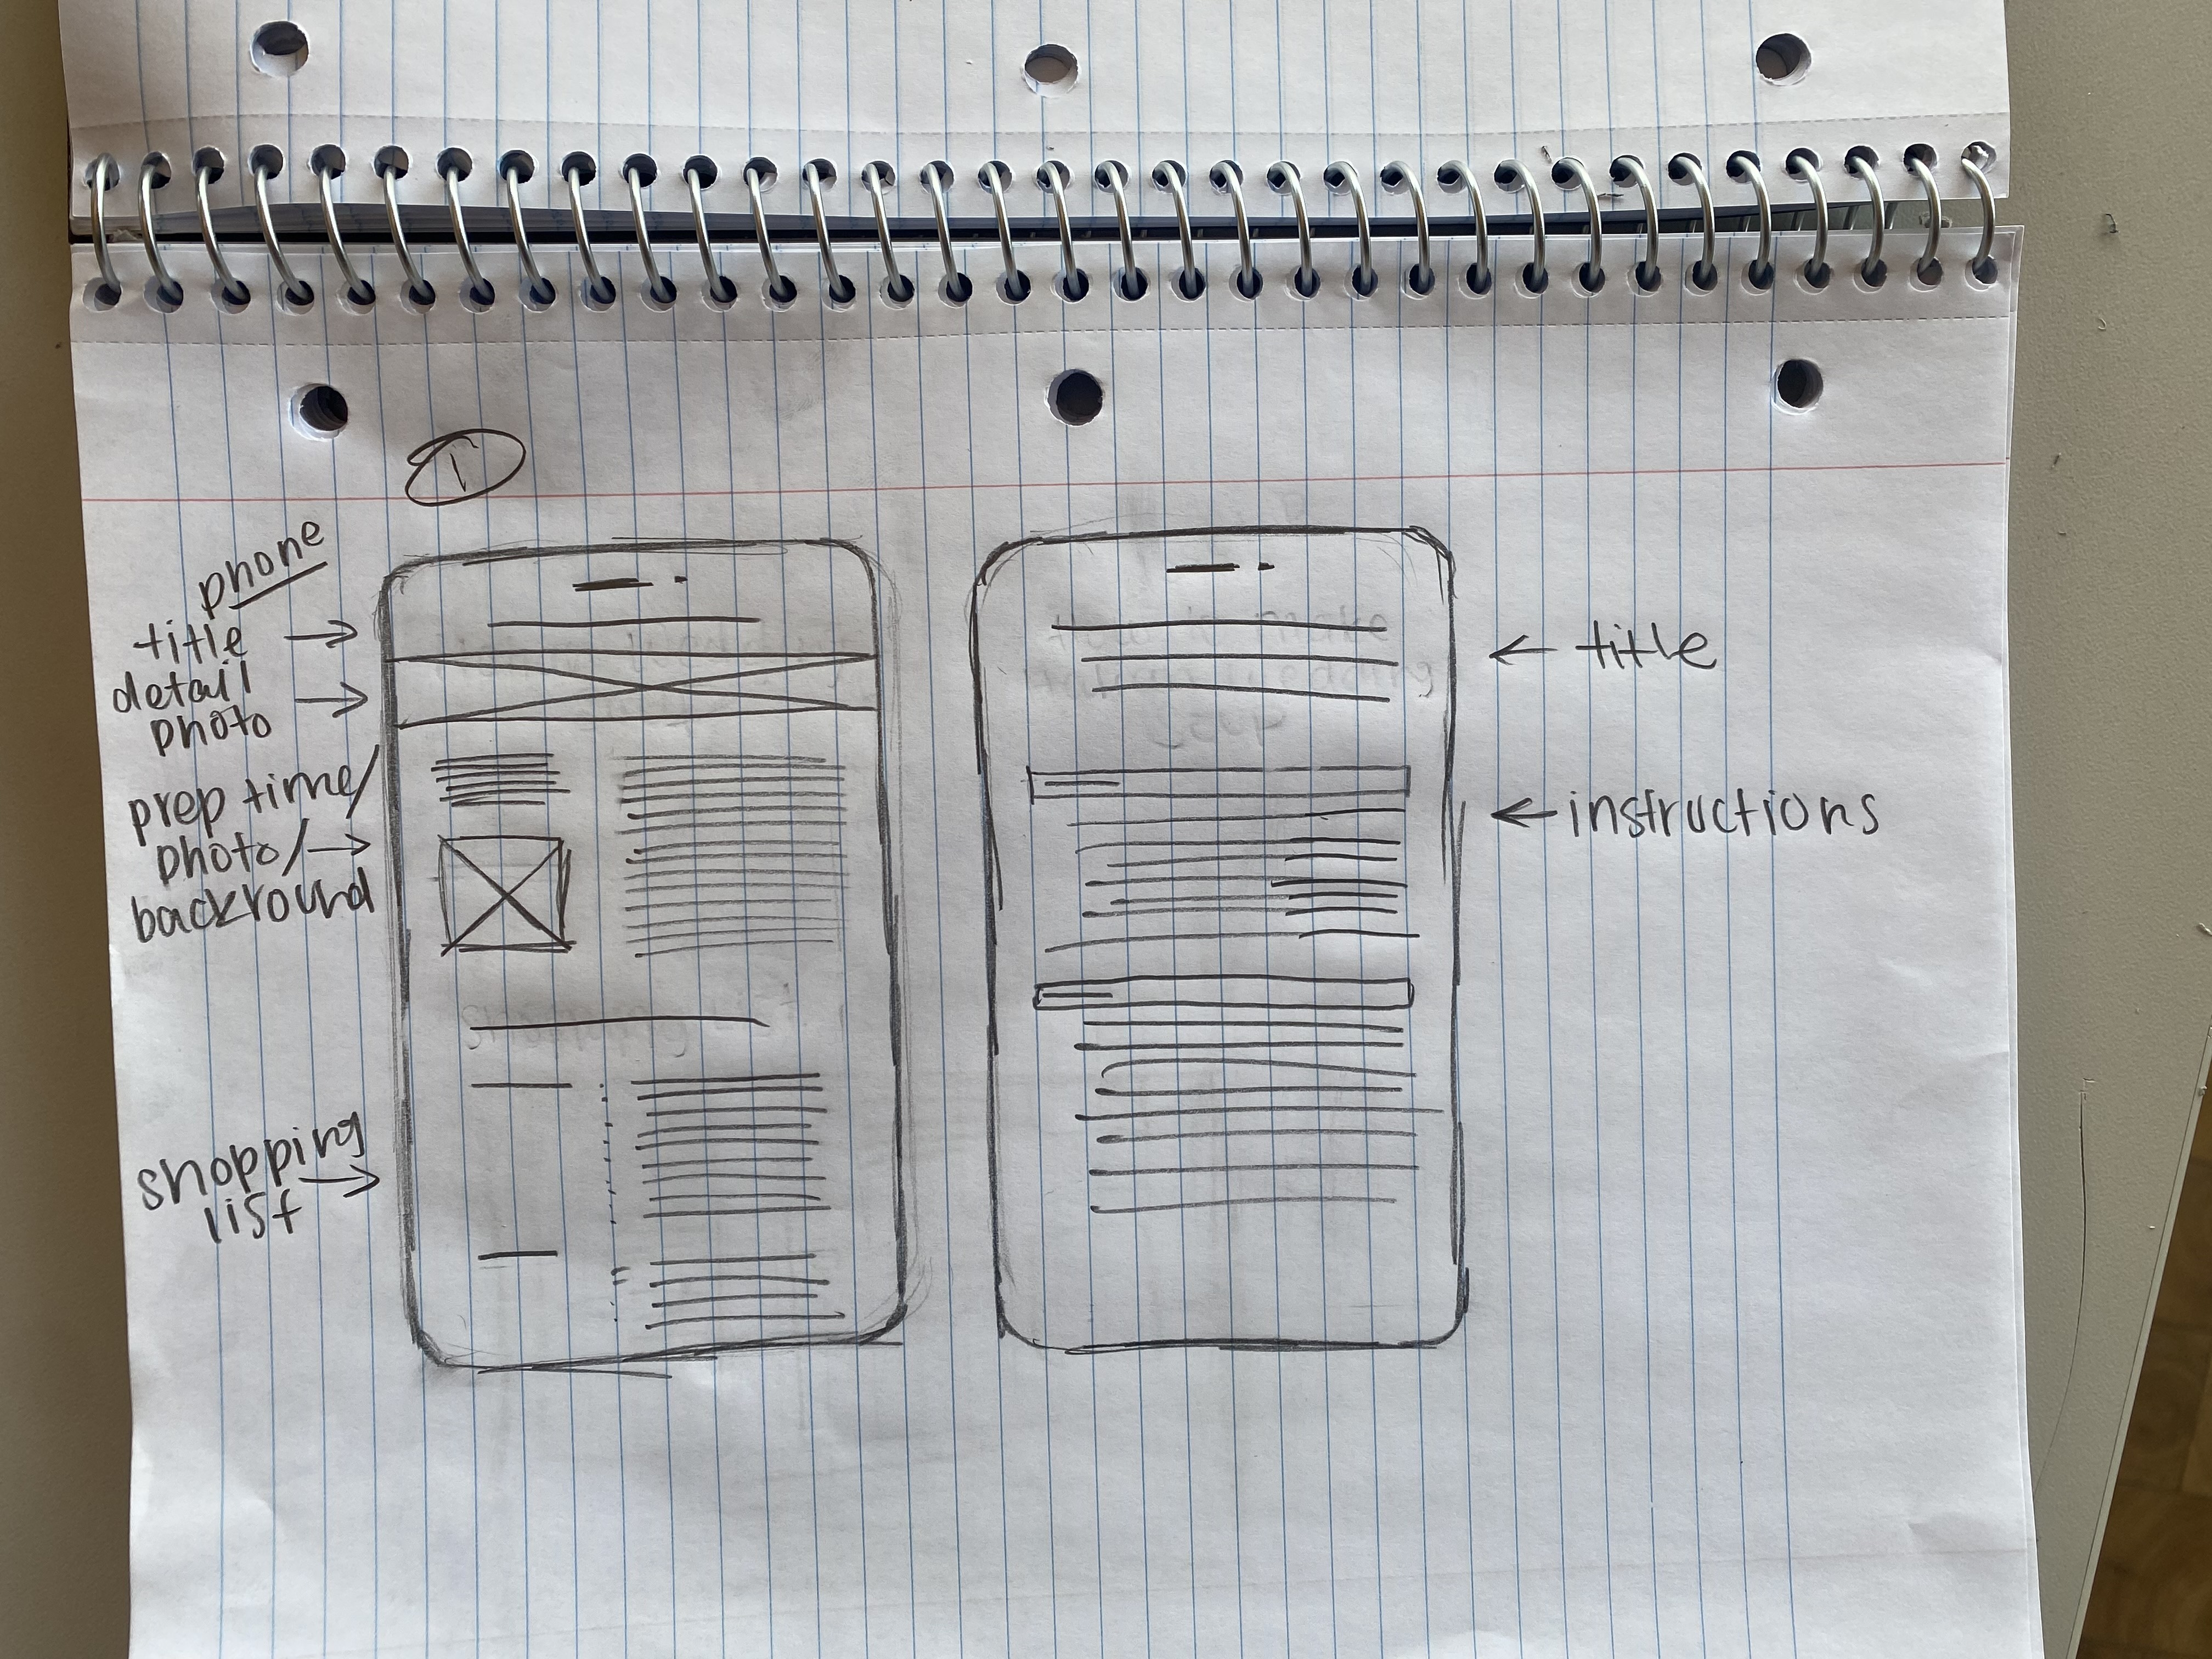 1
phone
title
detail
photo
prep time/
photo/
backround
shopping
list
title
instructions